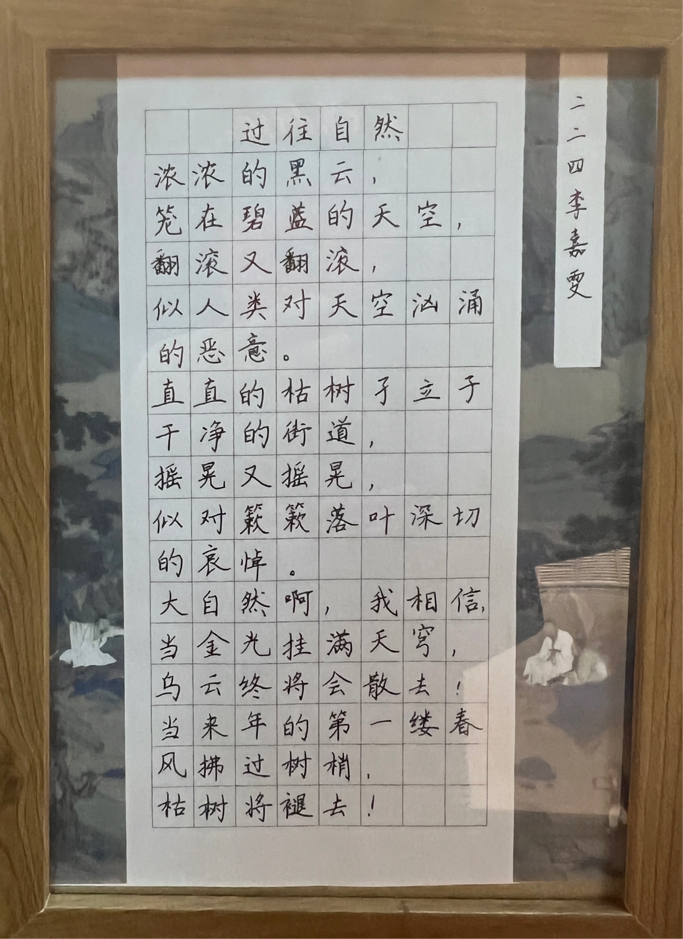 过往自然
浓浓的黑云，
笼在碧蓝的天空，
翻滚又翻滚，
似人类对天空汹涌
的恶意。
直直的枯树孑立于
干净的街道，
摇晃又摇晃，
似对簌簌落叶深切
的哀悼。
大自然啊，我相信，
当金光挂满天穹，
乌云终将会散去！
当来年的第一缕春
风拂过树梢，
枯树将褪去！
二二四李嘉雯